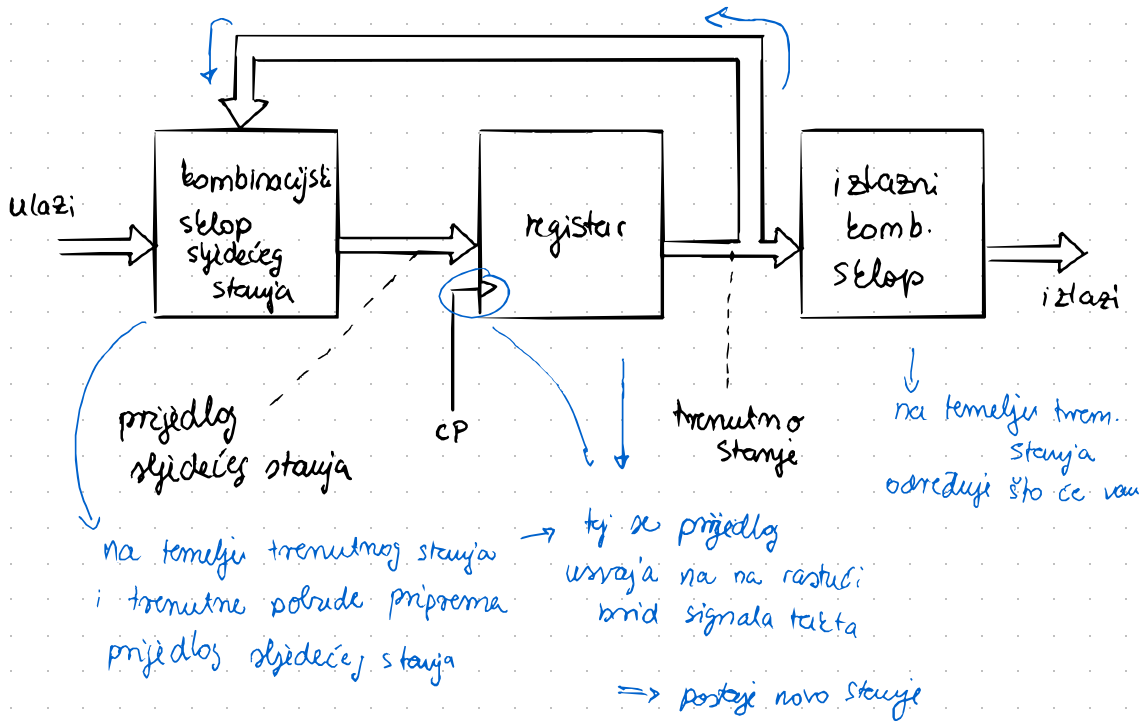 ulazi
kombinacijski
sklop
sljedećeg
stanja
registar
izlazni
komb.
sklop
izlazi
prijedlog
sljedećeg stanja
CP
trenutno
stanje
na temelju tren.
stanja
određuje što će van
na temelju trenutnog stanja
i trenutne pobude priprema
prijedlog sljedećeg stanja
→ taj se prijedlog
usvaja na na rastući
brid signala takta
⇒ postaje novo stanje